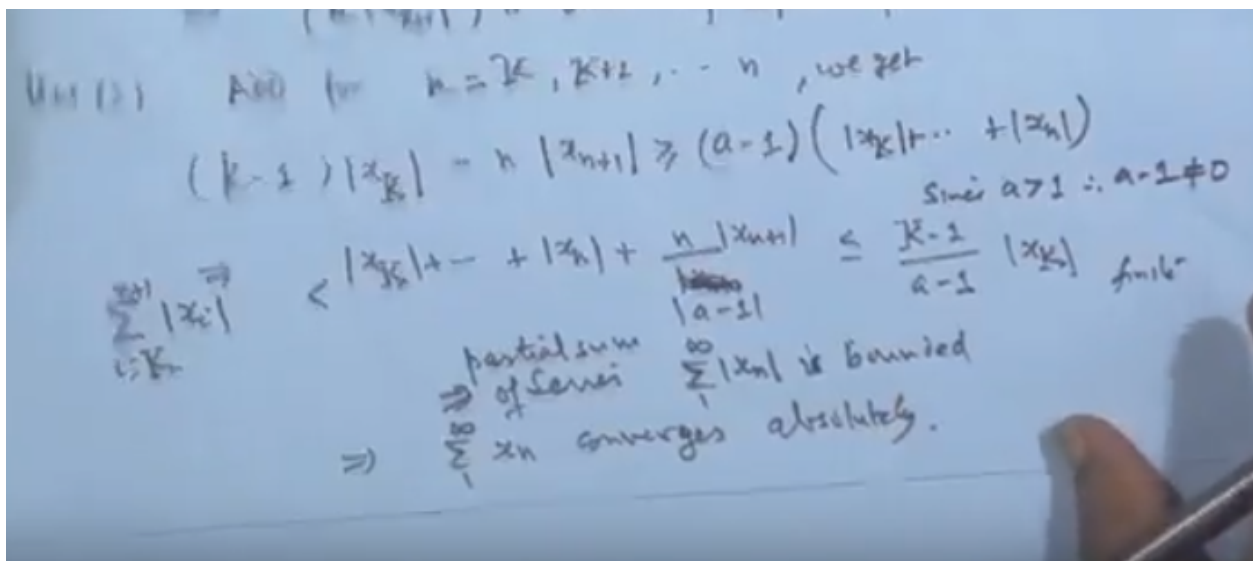 Add for n = K, K+1, .. n, we get
(K-1)|x_K| - n|x_{n+1}| ≥ (a-1)(|x_K|+.. +|x_n|)
Since a>1 ∴ a-1≠0
⇒ \sum_{i=K}^{n+1} |x_i| < |x_K|+-- +|x_n| + \frac{n|x_{n+1}|}{|a-1|} ≤ \frac{K-1}{a-1} |x_K| finite
⇒ partial sum of Series \sum_{1}^{∞} |x_n| is bounded
⇒ \sum_{1}^{∞} x_n converges absolutely.